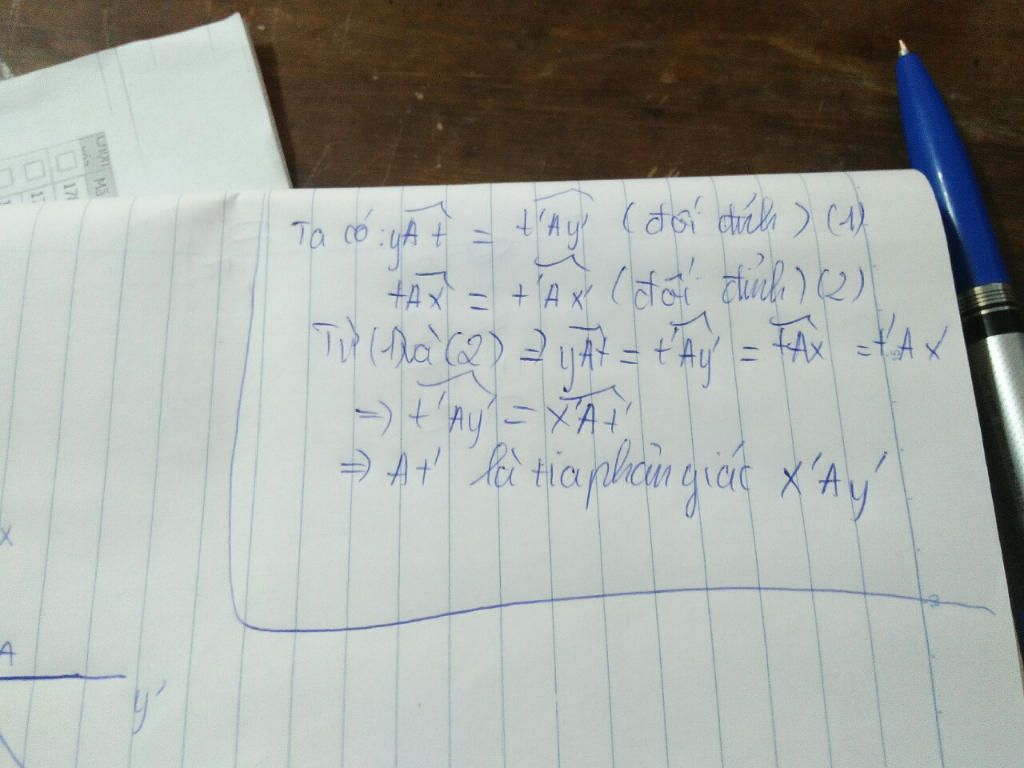 Ta có: yAt = t'Ay' (đối đỉnh) (1)
tAx = t'Ax' (đối đỉnh) (2)
Từ (1) và (2) => yAt = t'Ay' = tAx = t'Ax'
=> t'Ay' = x'At'
=> At' là tia phân giác x'Ay'
x
A
y'